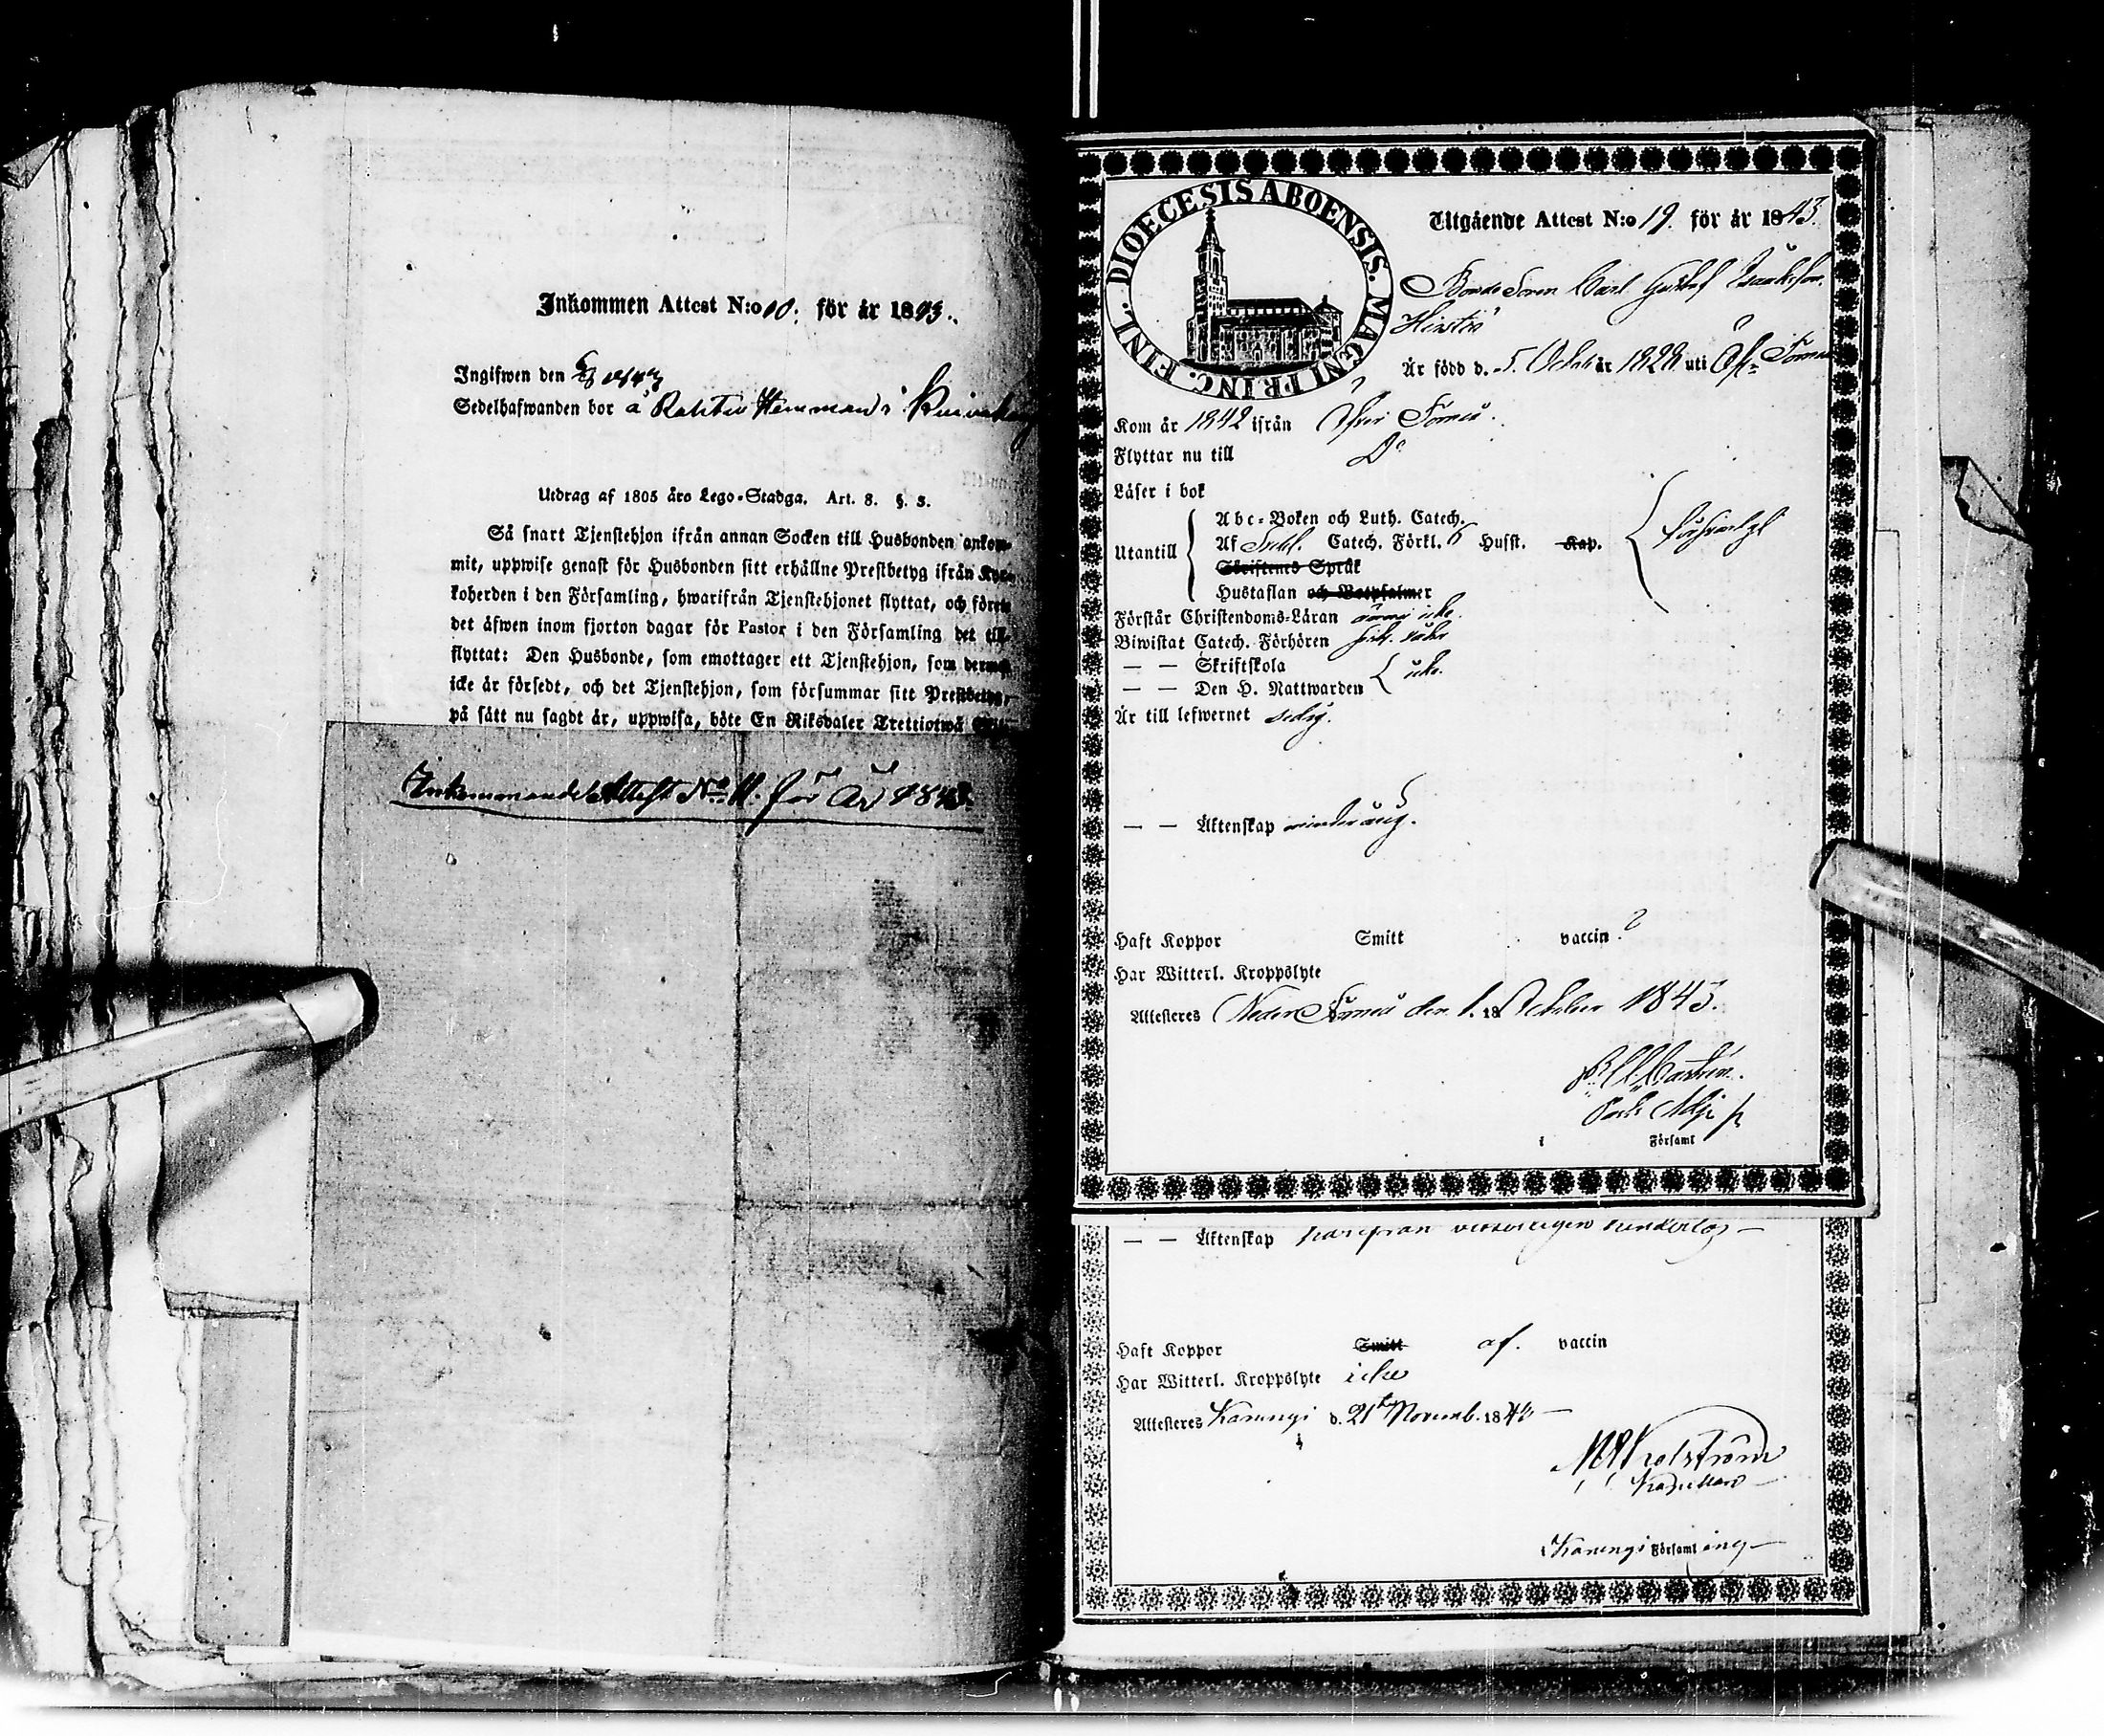 Inkommen Attest N:o 10. för år 1843.
Ingifwen den
Sedelhafwanden bor å Rahtu Hemman i
Utdrag af 1805 års Lego-Stadga. Art. 8. §. 3.
Så snart Tjenstehjon ifrån annan Socken till Husbonden ankom-
mit, uppwise genast för Husbonden sitt erhållne Prestbetyg ifrån Kyr-
koherden i den Församling, hwarifrån Tjenstehjonet flyttat, och förete
det äfwen inom fjorton dagar för Pastor i den Församling det till-
flyttat: Den Husbonde, som emottager ett Tjenstehjon, som dermed
icke är försedt, och det Tjenstehjon, som försummar sitt Prestbetyg,
på sätt nu sagdt är, uppwisa, böte En Riksdaler Trettiotwå
Inkommande Attest No 11. för År 1843.
DIOECESIS ABOENSIS. MAGNI PRINC. FINL.
Utgående Attest N:o 19. för år 1843.
Bonde Sonen Carl Gustaf Isaaksson
Är född d. 5. Octob år 1828 uti Öfr. Torneå
Kom år 1842 ifrån Öfver Torneå.
Flyttar nu till Do
Läser i bok
Abc-Boken och Luth. Catech.
Utantill Af Catech. Förkl. 6 Husst. Kap.
Skriftenes Språk
Hustaflan och Botpsalmer
försvarligt
Förstår Christendoms-Läran ännu icke.
Biwistat Catech. Förhören
— — Skriftskola
— — Den H. Nattwarden
icke.
Är till lefwernet sedig.
— — Äktenskap minderårig.
Haft Koppor Smitt vaccin ?
Har Witterl. Kroppslyte
Attesteres Neder Torneå den 1. 18 October 1843.
i Församl
— — Äktenskap härifrån veterligen hinderlös —
Haft Koppor Smitt af. vaccin
Har Witterl. Kroppslyte icke
Attesteres Karungi d. 21 Novemb. 1843 —
i Karungi Församling —